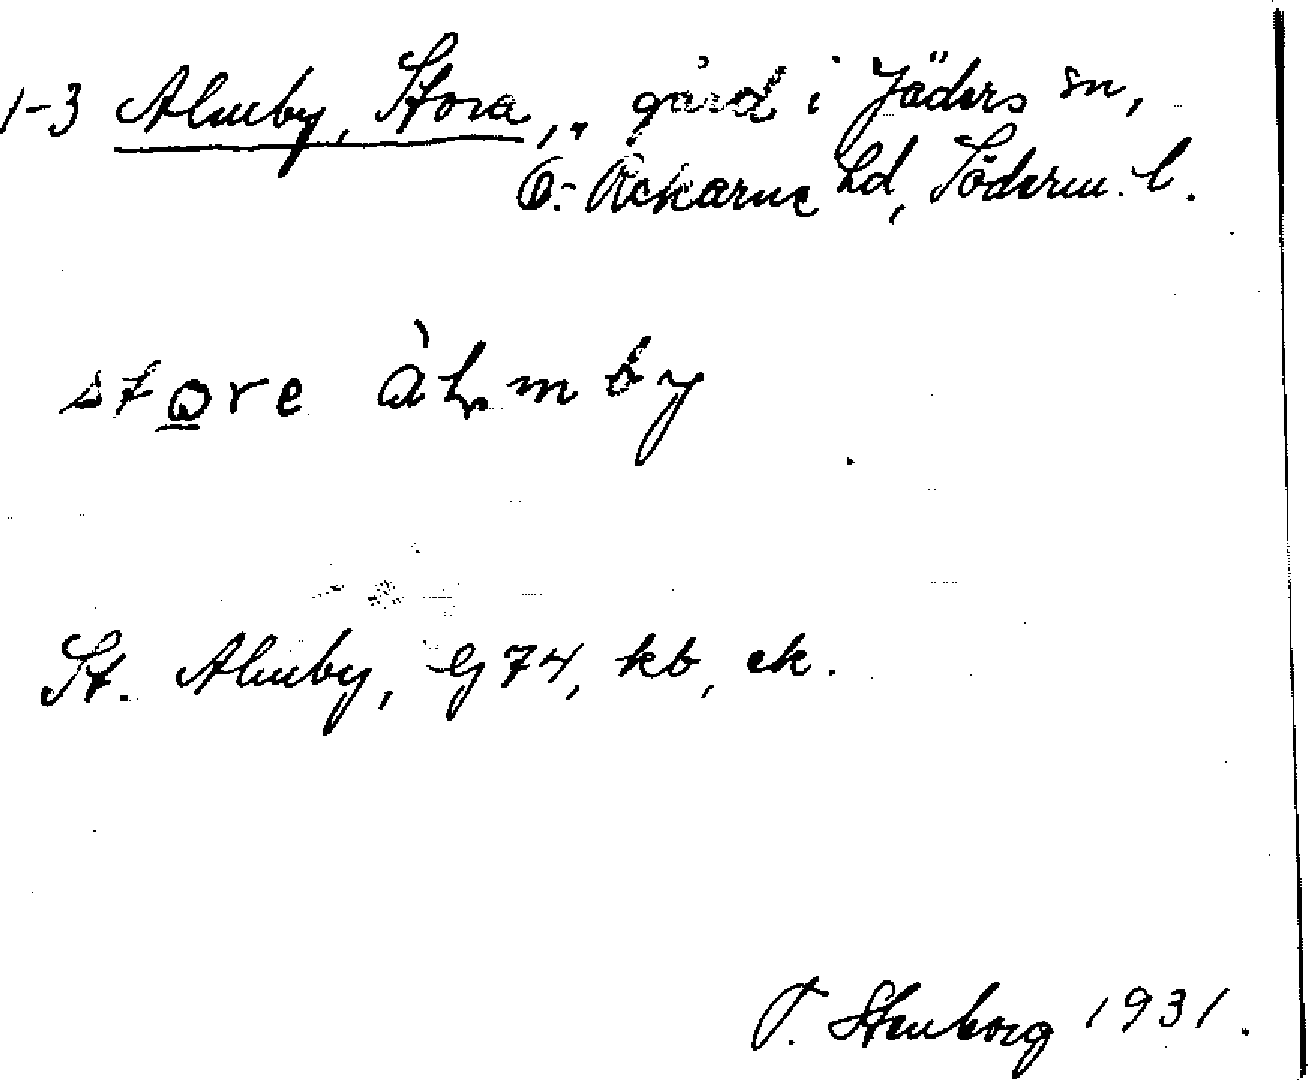 1-3 Almby, Stora, gård i Jäders sn,
Ö. Rekarne hd, Söderm. l.
store àlmby
St. Almby, Eg 74, kb, ek.
T. Stenborg 1931.